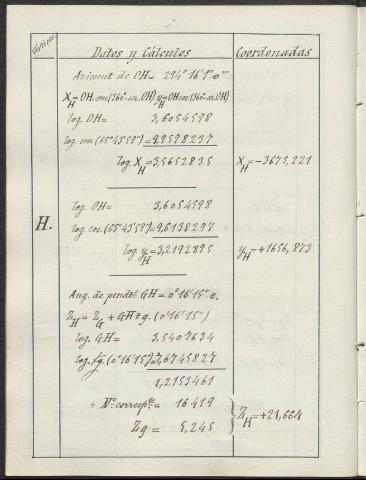 Vértices
Datos y Cálculos
Coordenadas
H.
Azimut de OH = 294° 16' 1" 0'''
X_H = OH. sen(360°-az. OH) y_H = OH cos(360°-az. OH)
log. OH = 3,6054598
log. sen (65° 43' 59") = 9,9598237
log. X_H = 3,5652835
X_H = -3675,221
log. OH = 3,6054598
log. cos. (65° 43' 59") = 9,6138297
log. y_H = 3,2192895
y_H = +1656,873
Ang. de pendte. GH = 0° 16' 15" e.
Z_H = Z_G + GH tg. (0° 16' 15")
log. GH = 3,5407634
log. tg. (0° 16' 15") = 7,6745827
1,2153461
+ Nº correspte. = 16419
Zg = 5,245
Z_H = +21,664